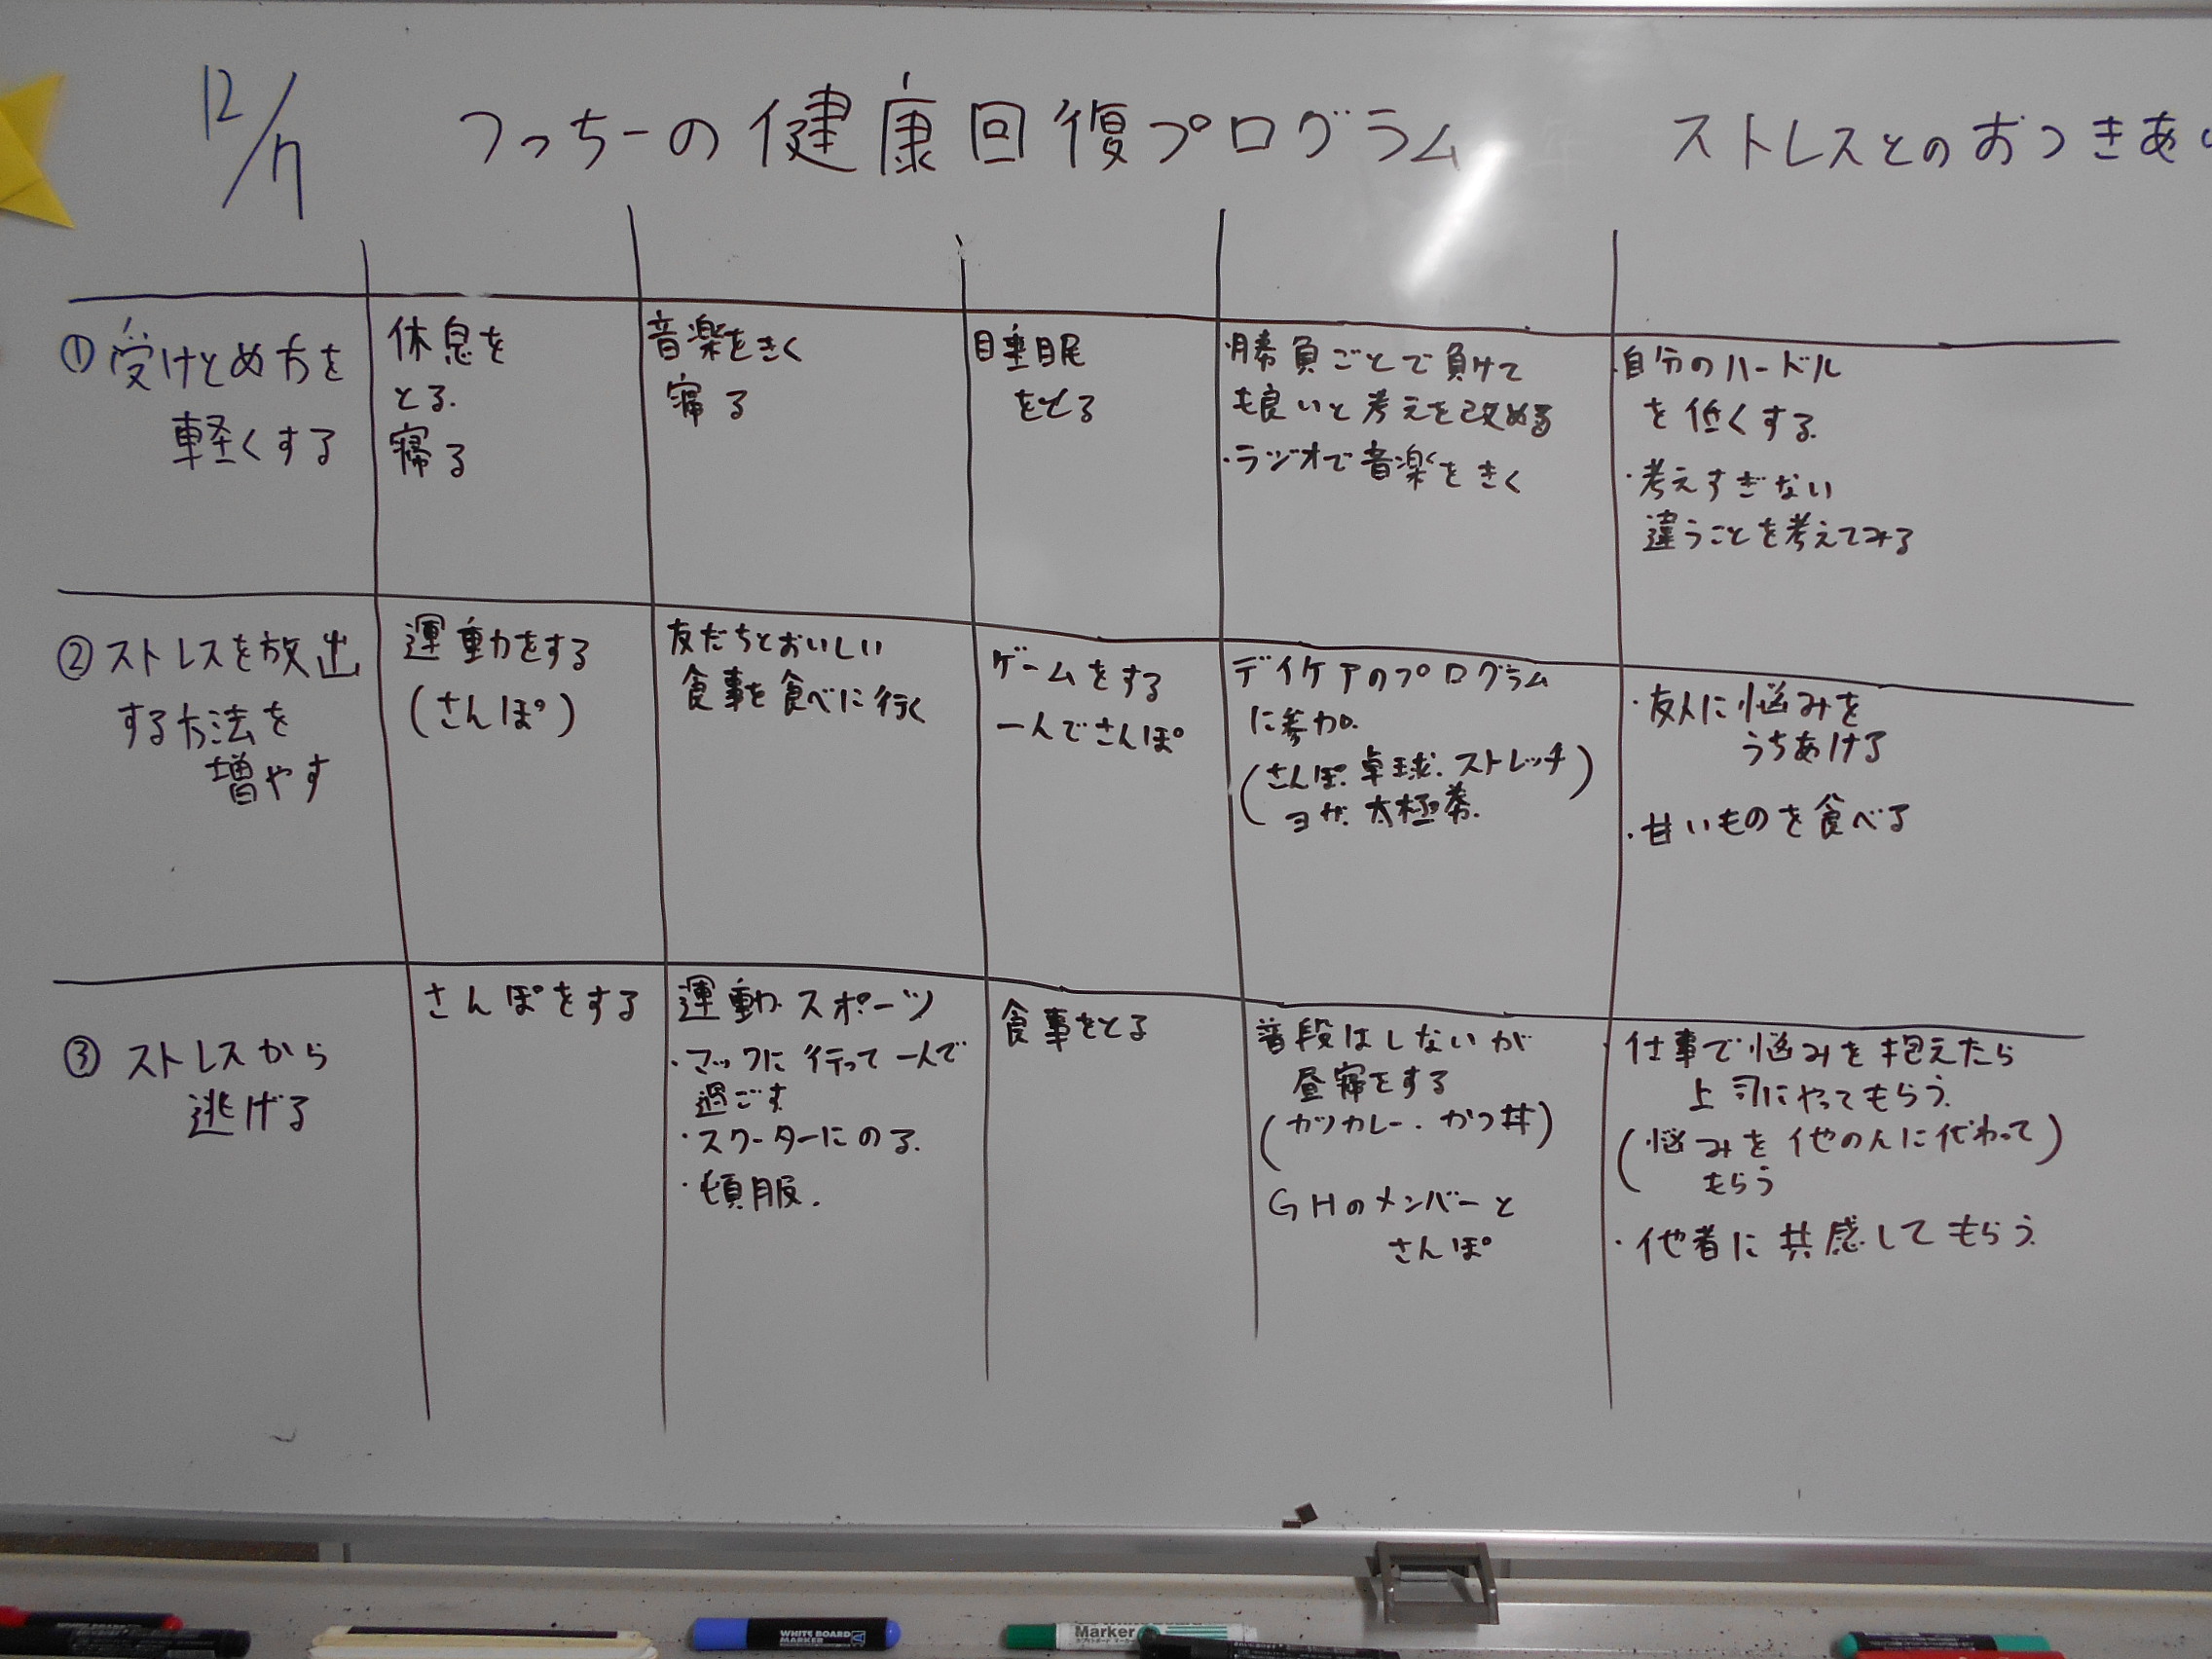 12/7 つっちーの健康回復プログラム ストレスとのおつきあい
①受けとめ方を
軽くする
休息を
とる.
寝る
音楽をきく
寝る
睡眠
をとる
・勝負ごとで負けて
も良いと考えを改める
・ラジオで音楽をきく
・自分のハードル
を低くする.
・考えすぎない
違うことを考えてみる
②ストレスを放出
する方法を
増やす
運動をする
(さんぽ)
友だちとおいしい
食事を食べに行く
ゲームをする
一人でさんぽ
デイケアのプログラム
に参加.
(さんぽ.卓球.ストレッチ
ヨガ.太極拳.)
・友人に悩みを
うちあける
・甘いものを食べる
③ストレスから
逃げる
さんぽをする
運動.スポーツ
・マックに行って一人で
過ごす.
・スクーターにのる.
・頓服.
食事をとる
普段はしないが
昼寝をする
(カツカレー.かつ丼)
GHのメンバーと
さんぽ
・仕事で悩みを抱えたら
上司にやってもらう.
(悩みを他の人に代わって
もらう)
・他者に共感してもらう.
WHITE BOARD
MARKER
Marker